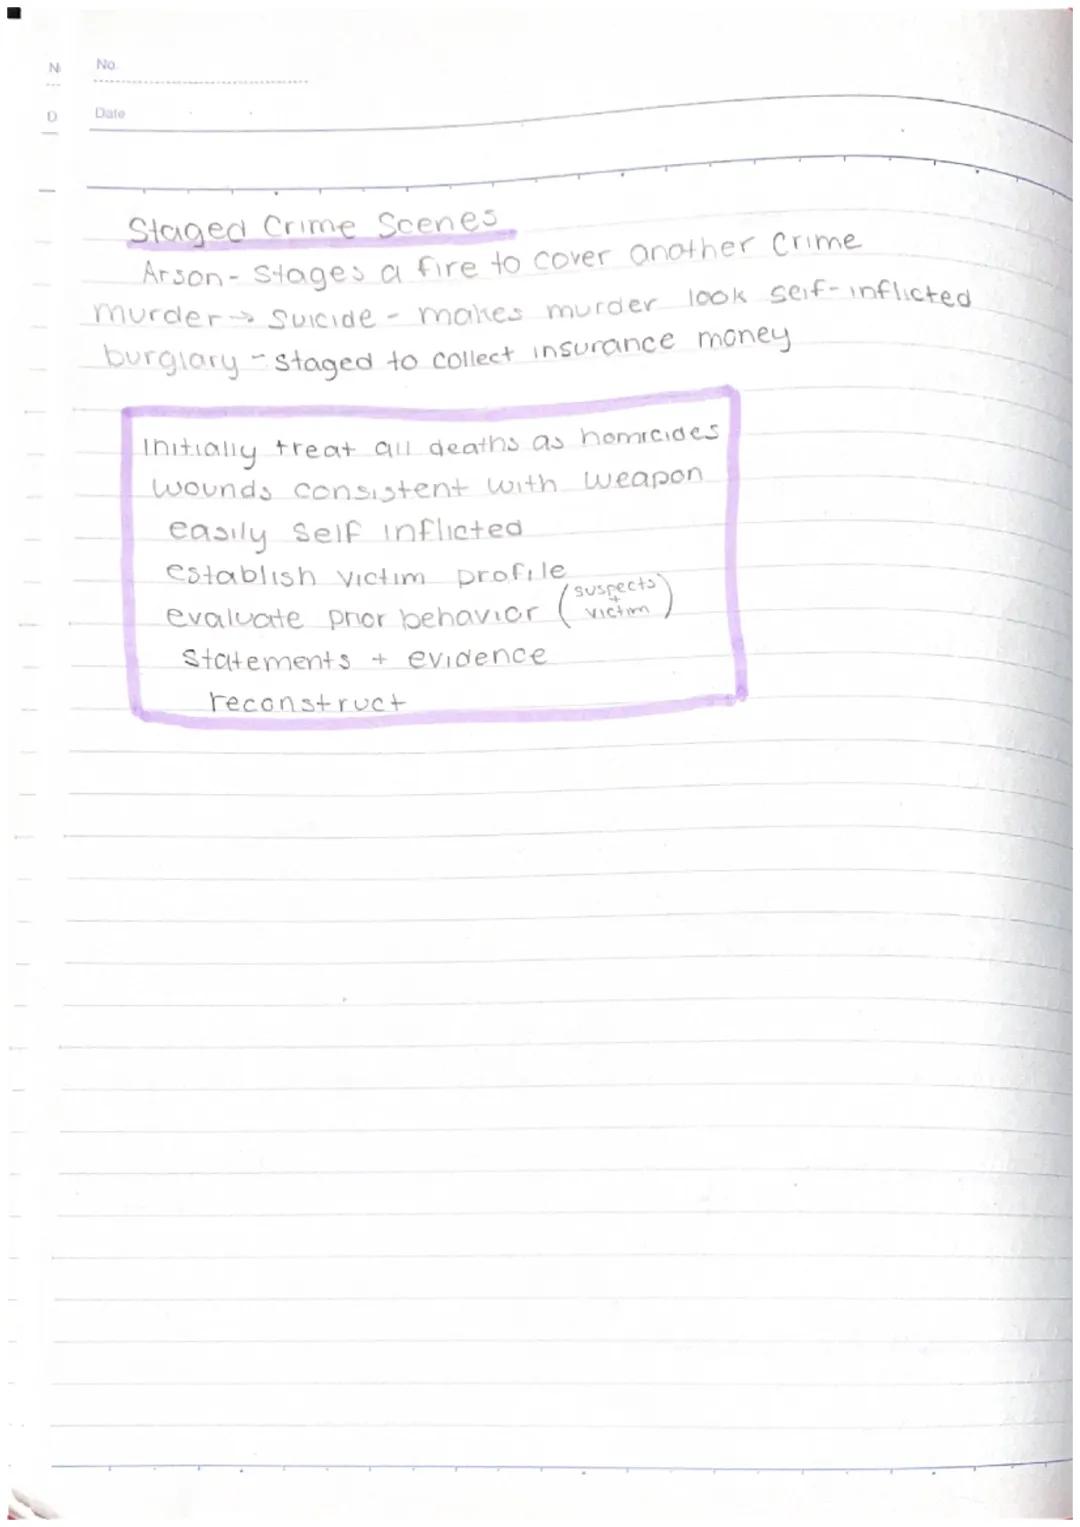 N No.
D Date
Staged Crime Scenes
Arson - stages a fire to cover another crime
murder → suicide - makes murder look self-inflicted
burglary - staged to collect insurance money
Initially treat all deaths as homicides
wounds consistent with weapon
easily self inflicted
establish victim profile
evaluate prior behavior (suspects + victim)
statements + evidence
reconstruct